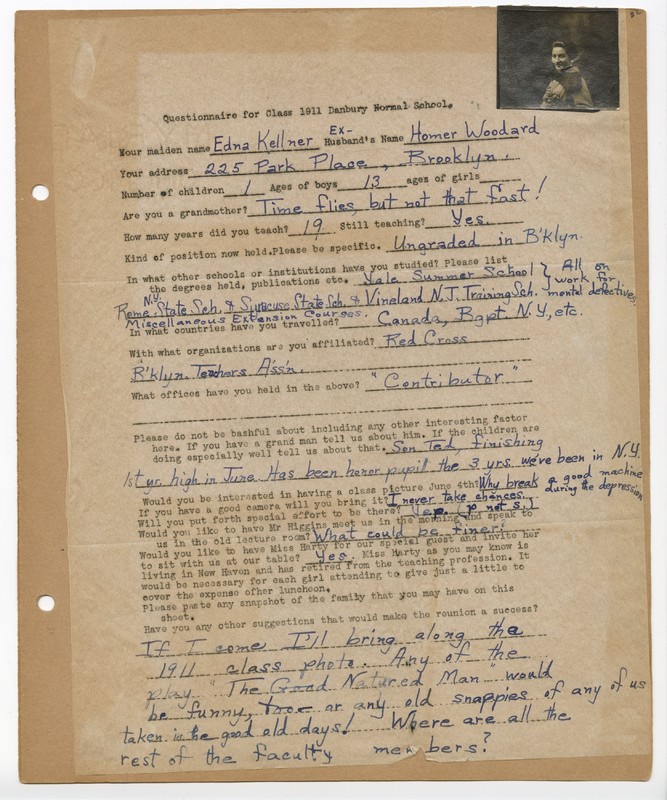 Questionnaire for Class 1911 Danbury Normal School.
Your maiden name Edna Kellner Ex- Husband's Name Homer Woodard
Your address 225 Park Place, Brooklyn.
Number of children 1 Ages of boys 13 ages of girls
Are you a grandmother? Time flies, but not that fast!
How many years did you teach? 19 Still teaching? Yes.
Kind of position now held. Please be specific. Ungraded in B'klyn.
In what other schools or institutions have you studied? Please list
the degrees held, publications etc. Yale Summer School } All on work for mental defectives
Rome N.Y. State Sch. & Syracuse State Sch. & Vineland N.J. Training Sch.
Miscellaneous Extension Courses.
In what countries have you travelled? Canada, Bgpt. N.Y., etc.
With what organizations are you affiliated? Red Cross
B'klyn. Teachers Ass'n.
What offices have you held in the above? "Contributor"
Please do not be bashful about including any other interesting factor
here. If you have a grand man tell us about him. If the children are
doing especially well tell us about that. Son Ted, finishing
1st yr. high in June. Has been honor pupil the 3 yrs. we've been in N.Y.
Would you be interested in having a class picture June 4th? Why break a good machine during the depression
If you have a good camera will you bring it? I never take chances.
Will you put forth special effort to be there? Yep. (p not s.)
Would you like to have Mr Higgins meet us in the morning and speak to
us in the old lecture room? What could be finer!
Would you like to have Miss Harty for our special guest and invite her
to sit with us at our table? Yes. Miss Harty as you may know is
living in New Haven and has retired from the teaching profession. It
would be necessary for each girl attending to give just a little to
cover the expense ofher luncheon.
Please paste any snapshot of the family that you may have on this
sheet.
Have you any other suggestions that would make the reunion a success?
If I come I'll bring along the
1911 class photo. Any of the
play "The Good Natured Man" would
be funny, too or any old snappies of any of us
taken in the good old days! Where are all the
rest of the faculty members?